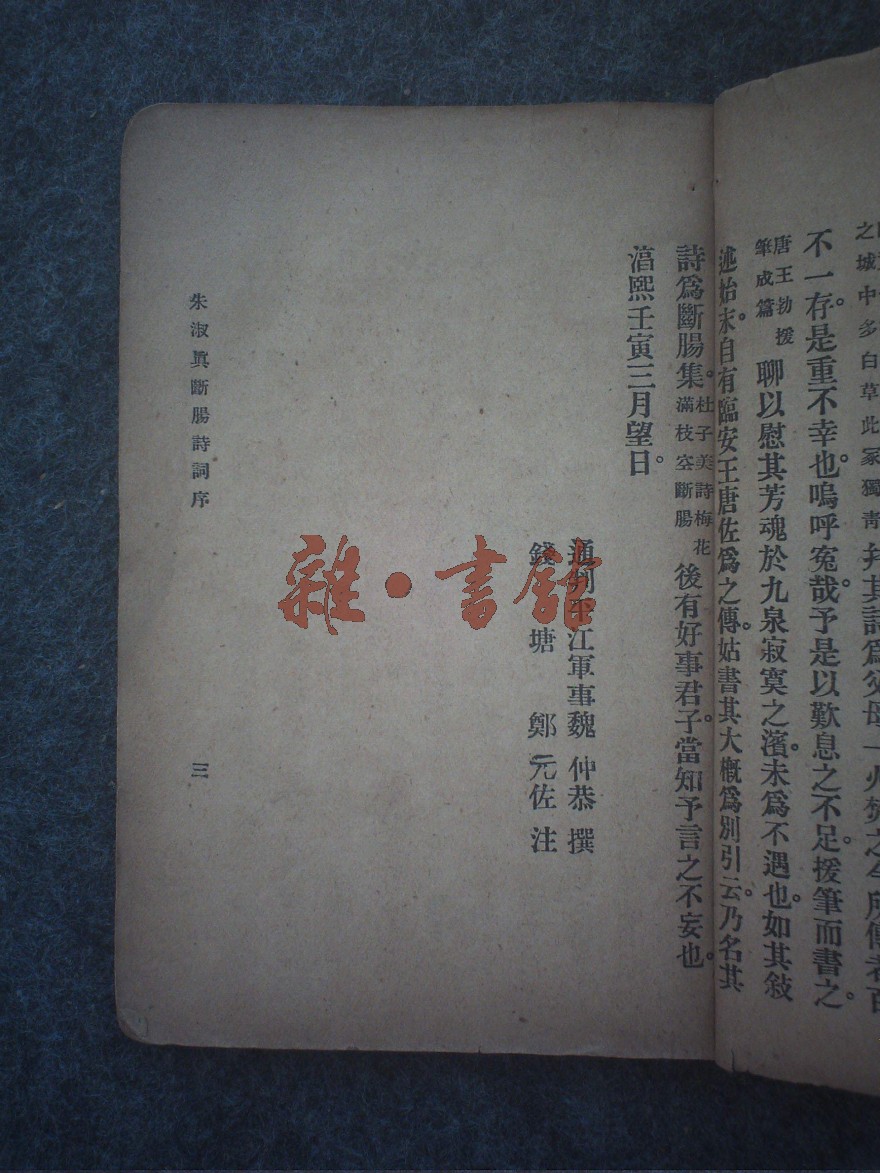 之城中多白草此冢獨靑
并其詩爲父母一火焚之今所傳者百
不一存。是重不幸也。嗚呼寃哉。予是以歎息之不足。援筆而書之。
唐王勃援
筆成篇
聊以慰其芳魂於九泉寂寞之濱。未爲不遇也。如其敍
述始末。自有臨安王唐佐爲之傳。姑書其大槪爲別引云。乃名其
詩爲斷腸集。
杜子美詩梅花
滿枝空斷腸
後有好事君子。當知予言之不妄也。
湻熙壬寅三月望日。
通判平江軍事魏仲恭撰
錢塘鄭元佐注
朱淑眞斷腸詩詞序
三
雜·書館